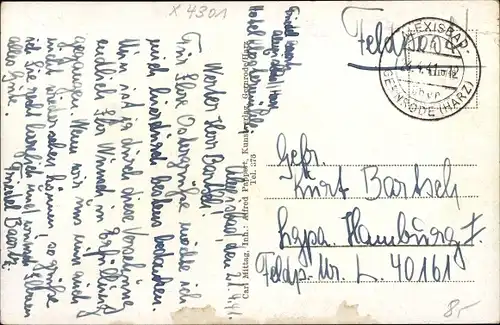 X 4301
Friedel Baartz
Alexisbad/Harz
Hotel
Alexisbad, den 2.4.41.
Werter Herr Bartsch!
Für Ihre Ostergrüße möchte ich
mich hierdurch bestens bedanken.
Nun ist ja durch diese
endlich Ihr Wunsch in Erfüllung
gegangen. Wenn wir uns nun auch
nicht wiedersehen können, so grüße
ich Sie recht herzlich und wünsche Ihnen
alles Gute.
Friedel Baartz.
Carl Mittag, Inh.: Alfred Pappert, Kunstverlag, Gernrode/Harz
Tel. 375
Feldpost
ALEXISBAD
GERNRODE (HARZ)
Gefr.
Kurt Bartsch
Lgpa. Hamburg 1.
Feldp.-Nr. L. 40161
8,-